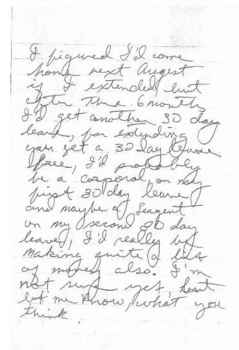 I figured I'd come
home next August
if I extended, but
after those 6 months
I'd get another 30 day
leave, for extending
you get a 30 day leave
free, I'd probably
be a corporal on my
first 30 day leave
and maybe a Sergent
on my second 30 day
leave, I'd really be
making quite a bit
of money also. I'm
not sure yet, but
let me know what you
think.